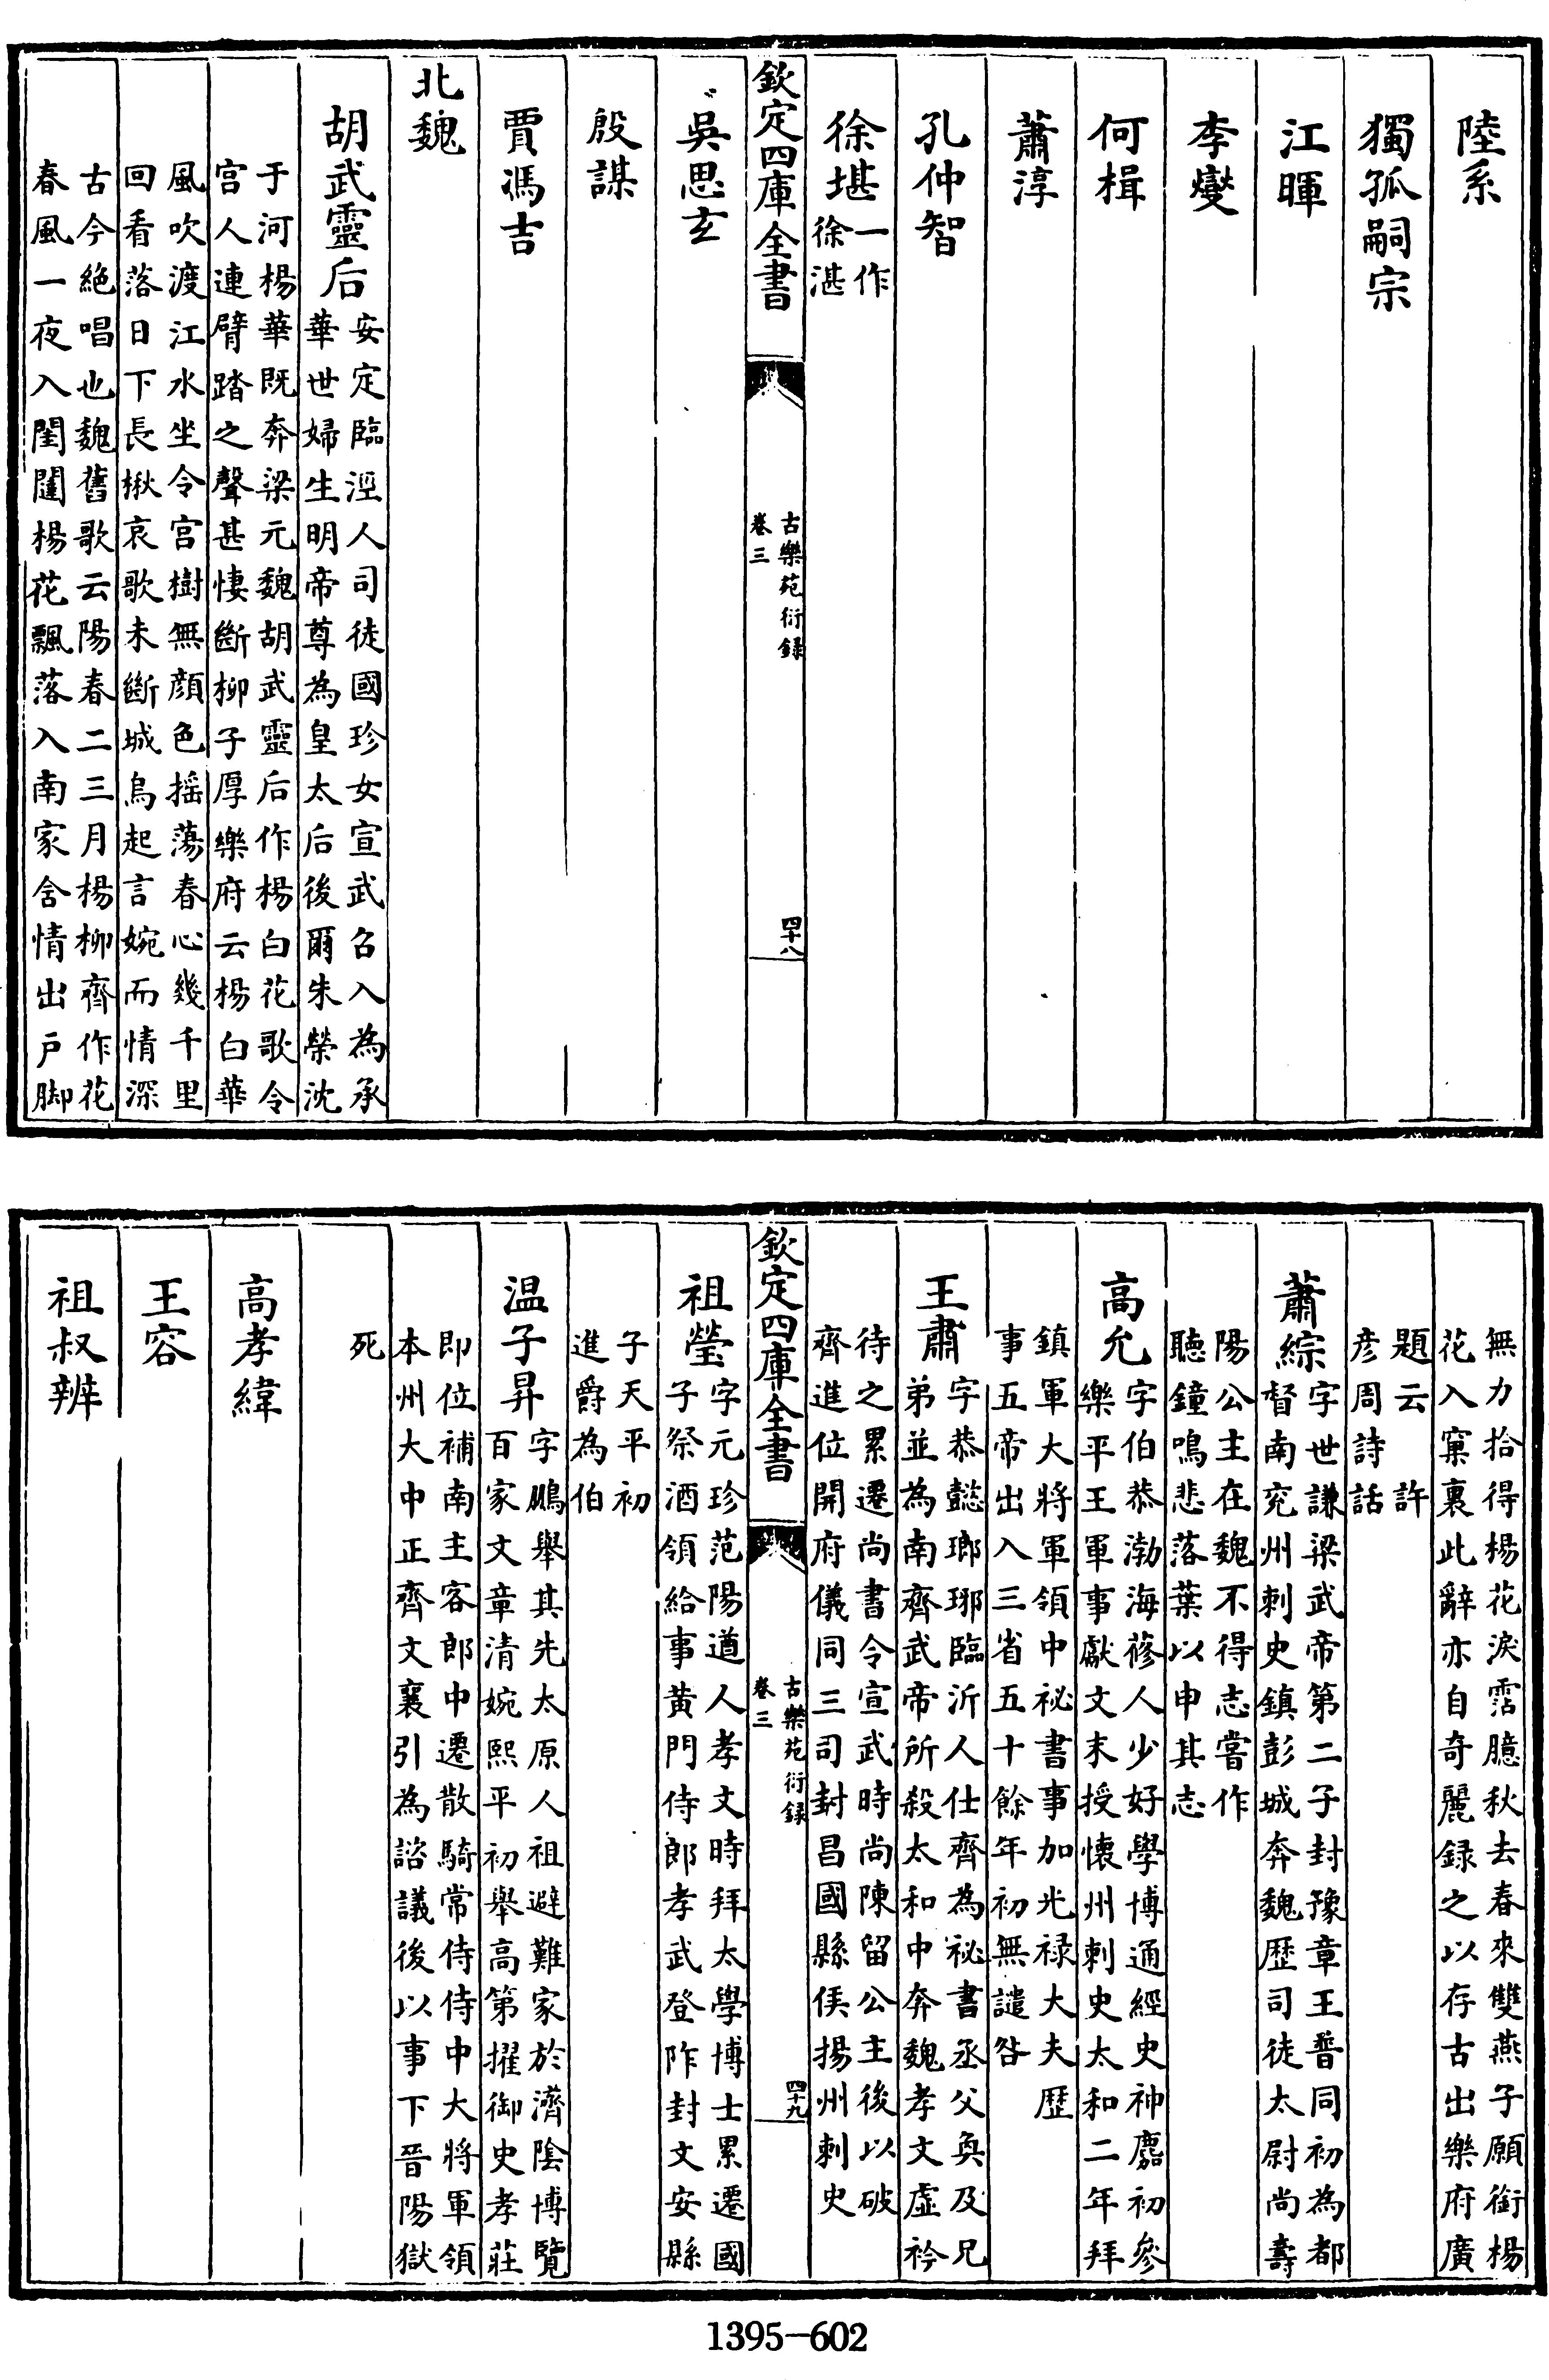 陸系
獨孤嗣宗
江暉
李燮
何楫
蕭淳
孔仲智
徐堪一作
徐湛
欽定四庫全書
古樂苑衍録
卷三
四十八
吳思玄
殷謀
賈馮吉
北魏
胡武靈后安定臨涇人司徒國珍女宣武召入為承
華世婦生明帝尊為皇太后後爾朱榮沈
于河楊華既奔梁元魏胡武靈后作楊白花歌令
宫人連臂踏之聲甚悽斷柳子厚樂府云楊白華
風吹渡江水坐令宫樹無顔色揺蕩春心幾千里
回看落日下長楸哀歌未斷城烏起言婉而情深
古今絶唱也魏舊歌云陽春二三月楊柳齊作花
春風一夜入閨闥楊花飄落入南家含情出户脚
無力拾得楊花淚霑臆秋去春來雙燕子願銜楊
花入窠裏此辭亦自奇麗録之以存古出樂府廣
題云許
彦周詩話
蕭綜字世謙梁武帝第二子封豫章王普同初為都
督南兖州刺史鎮彭城奔魏歴司徒太尉尚壽
陽公主在魏不得志嘗作
聽鐘鳴悲落葉以申其志
高允字伯恭渤海蓨人少好學博通經史神䴥初參
樂平王軍事獻文末授懷州刺史太和二年拜
鎮軍大將軍領中祕書事加光禄大夫歴
事五帝出入三省五十餘年初無譴咎
王肅字恭懿瑯琊臨沂人仕齊為祕書丞父奐及兄
弟並為南齊武帝所殺太和中奔魏孝文虚衿
待之累遷尚書令宣武時尚陳留公主後以破
齊進位開府儀同三司封昌國縣侯揚州刺史
欽定四庫全書
古樂苑衍録
卷三
四十九
祖瑩字元珍范陽遒人孝文時拜太學博士累遷國
子祭酒領給事黄門侍郎孝武登阼封文安縣
子天平初
進爵為伯
温子昇字鵬舉其先太原人祖避難家於濟陰博覽
百家文章清婉熙平初舉高第擢御史孝莊
即位補南主客郎中遷散騎常侍侍中大將軍領
本州大中正齊文襄引為諮議後以事下晉陽獄
死
高孝緯
王容
祖叔辨
1395-602